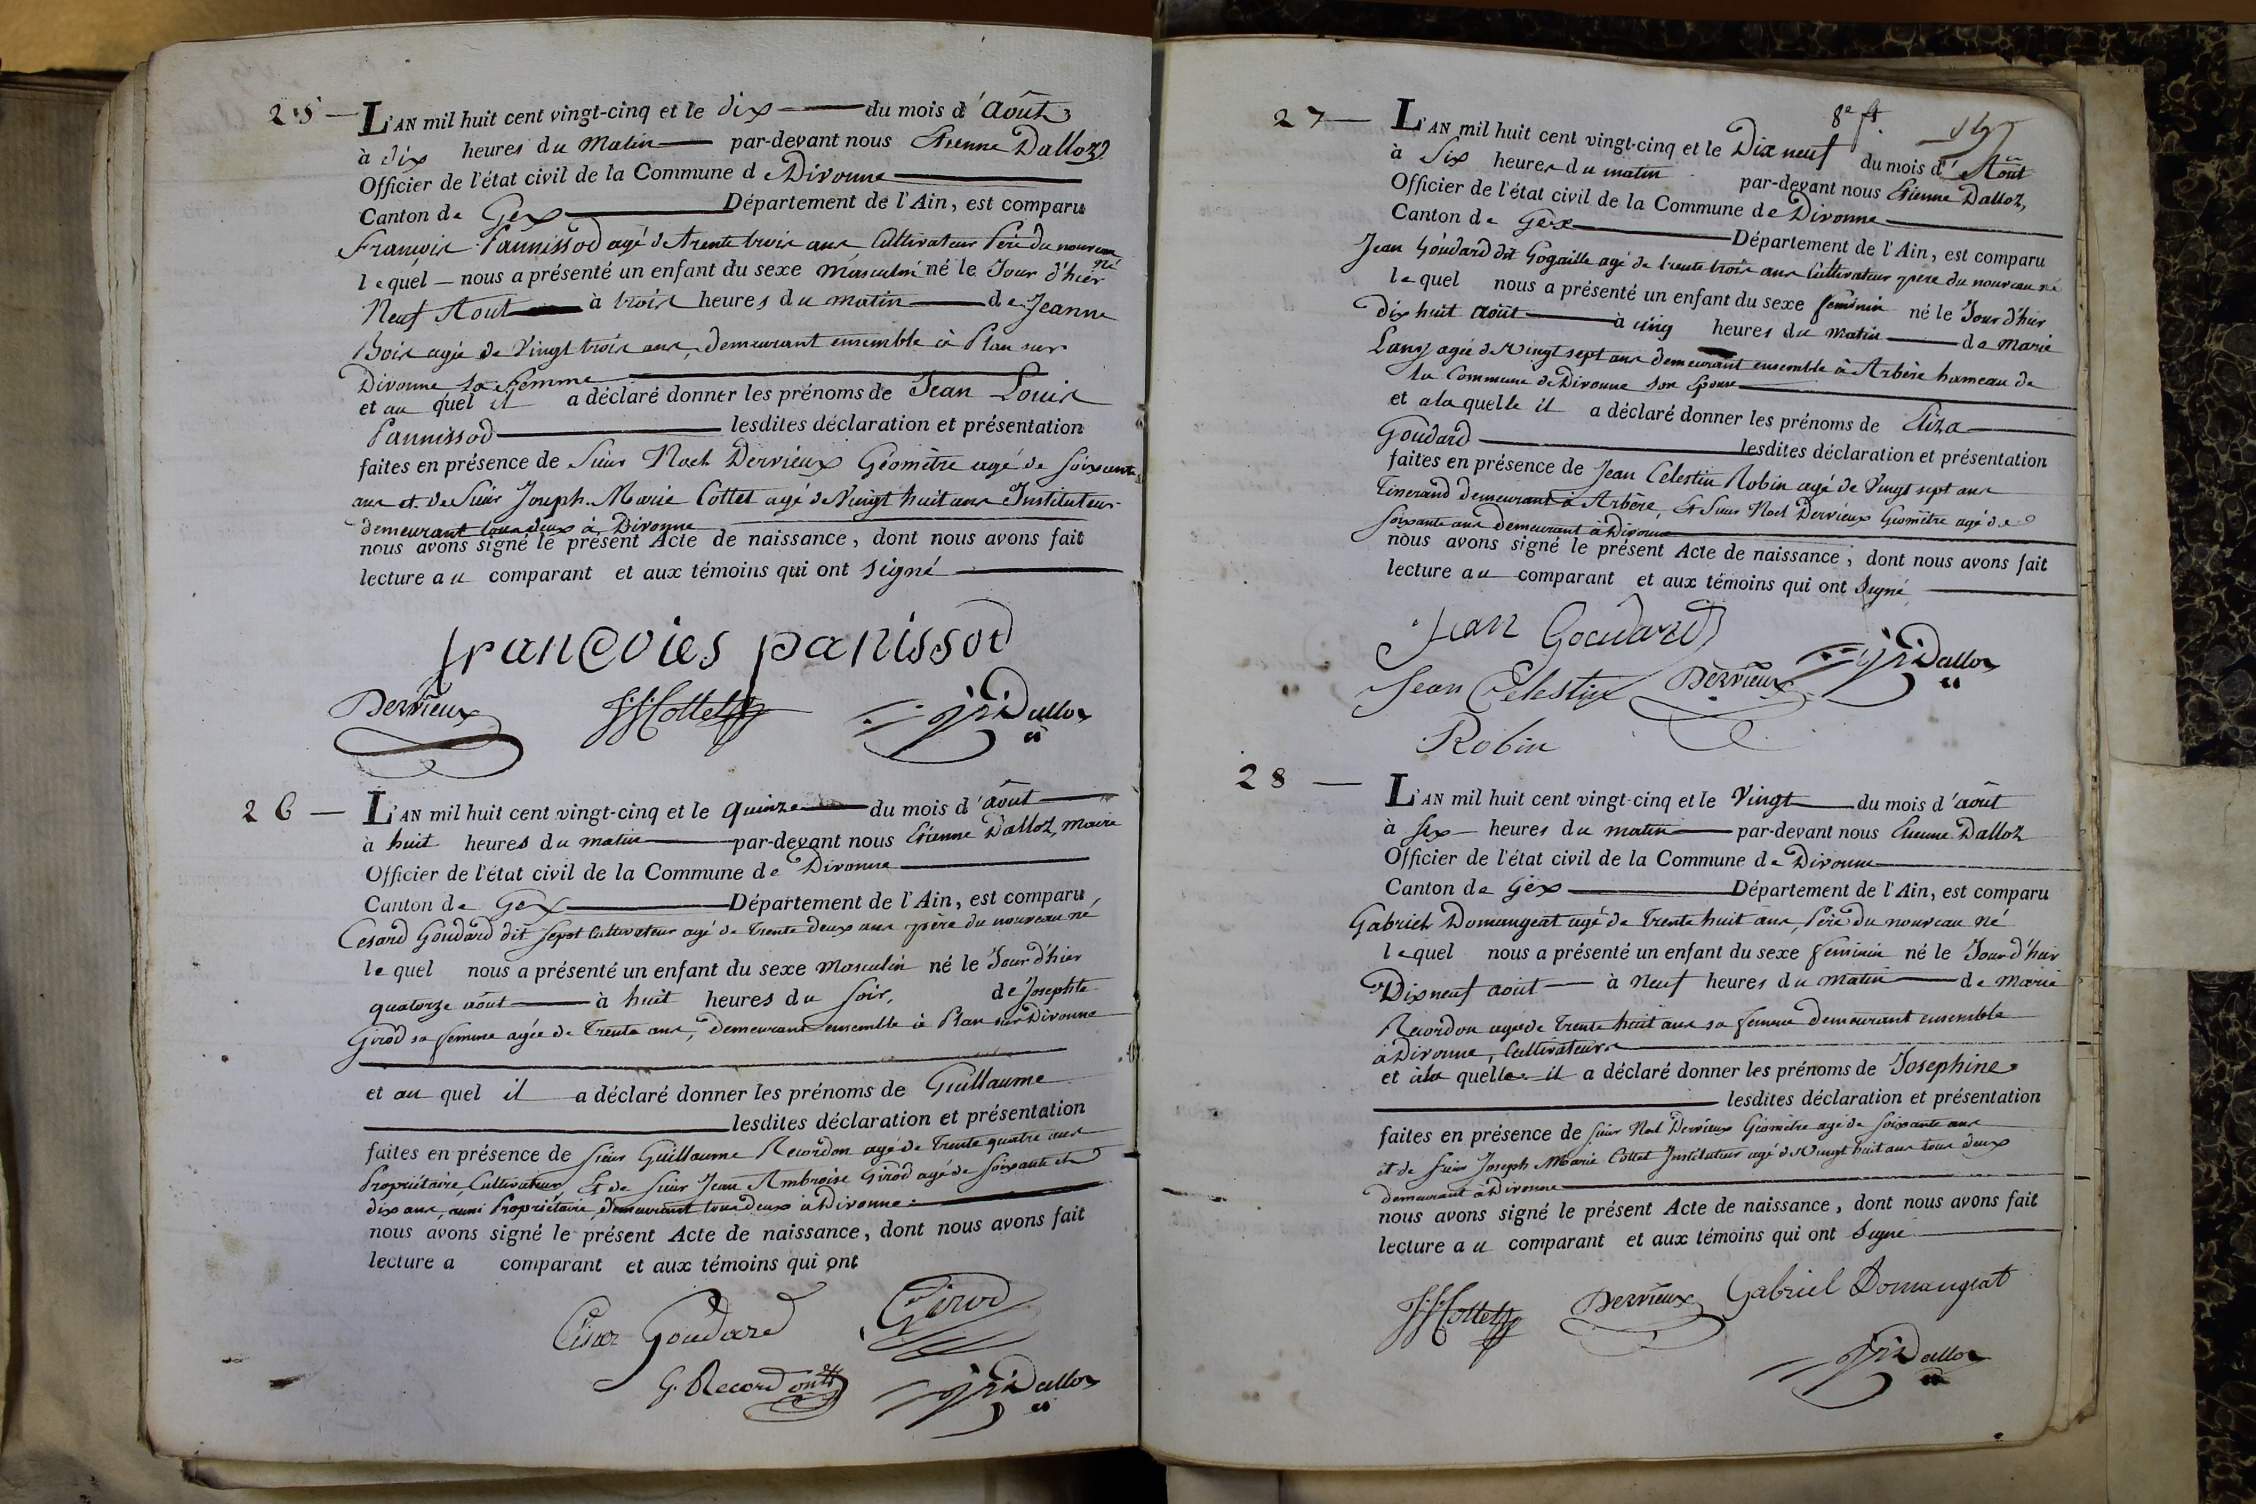 25 — L'AN mil huit cent vingt-cinq et le dix du mois d'Août
à dix heures du Matin par-devant nous Etienne Dalloz
Officier de l'état civil de la Commune de Divonne
Canton de Gex Département de l'Ain, est comparu
François Pannissod agé de trente trois ans Cultivateur Père du nouveau né
lequel nous a présenté un enfant du sexe Masculin né le Jour d'hier
Neuf Aout à trois heures du matin de Jeanne
Bois agée de Vingt trois ans, demeurant ensemble à Plan sur
Divonne sa femme
et au quel il a déclaré donner les prénoms de Jean Louis
Pannissod lesdites déclaration et présentation
faites en présence de Sieur Noel Dervieux Géomètre agé de Soixante
ans et de Sieur Joseph Marie Cottet agé de Vingt huit ans Instituteur
demeurant tous deux à Divonne
nous avons signé le présent Acte de naissance, dont nous avons fait
lecture au comparant et aux témoins qui ont signé
francoies panissod
Dervieux Cottet Dalloz
26 — L'AN mil huit cent vingt-cinq et le quinze du mois d'août
à huit heures du matin par-devant nous Etienne Dalloz, Maire
Officier de l'état civil de la Commune de Divonne
Canton de Gex Département de l'Ain, est comparu
Cesard Goudard dit Cultivateur agé de Trente deux ans père du nouveau né
lequel nous a présenté un enfant du sexe Masculin né le Jour d'hier
quatorze août à huit heures du soir, de Josephte
Girod sa femme agée de Trente ans, demeurant ensemble à Plan sur Divonne
et au quel il a déclaré donner les prénoms de Guillaume
lesdites déclaration et présentation
faites en présence de Sieur Guillaume Recordon agé de Trente quatre ans
Propriétaire Cultivateur, Et de Sieur Jean Ambroise Girod agé de soixante et
dix ans, aussi Propriétaire, demeurant tous deux à Divonne
nous avons signé le présent Acte de naissance, dont nous avons fait
lecture a comparant et aux témoins qui ont
César Goudard Girod
G. Recordon Dalloz
8e ft.
27 — L'AN mil huit cent vingt-cinq et le Dix neuf du mois d'Août
à Six heures du matin par-devant nous Etienne Dalloz,
Officier de l'état civil de la Commune de Divonne
Canton de Gex Département de l'Ain, est comparu
Jean Goudard dit Gogaille agé de trente trois ans Cultivateur père du nouveau né
lequel nous a présenté un enfant du sexe feminin né le Jour d'hier
dix huit août à cinq heures du matin de Marie
Lany agée de Vingt sept ans demeurant ensemble à Arbère hameau de
la Commune de Divonne son Epouse
et a la quelle il a déclaré donner les prénoms de Eliza
Goudard lesdites déclaration et présentation
faites en présence de Jean Celestin Robin agé de Vingt sept ans
Tisserand demeurant à Arbère, Et Sieur Noel Dervieux Géomètre agé de
Soixante ans demeurant à Divonne
nous avons signé le présent Acte de naissance, dont nous avons fait
lecture au comparant et aux témoins qui ont Signé
Jean Goudard
Jean Celestin Dervieux Dalloz
Robin
28 — L'AN mil huit cent vingt-cinq et le Vingt du mois d'août
à six heures du matin par-devant nous Etienne Dalloz
Officier de l'état civil de la Commune de Divonne
Canton de Gex Département de l'Ain, est comparu
Gabriel Domangeat agé de Trente huit ans, Père du nouveau né
lequel nous a présenté un enfant du sexe feminin né le Jour d'hier
Dix neuf août à Neuf heures du matin de Marie
Recordon agée de Trente huit ans sa femme demeurant ensemble
à Divonne, Cultivateurs
et à la quelle il a déclaré donner les prénoms de Josephine
lesdites déclaration et présentation
faites en présence de Sieur Noel Dervieux Géomètre agé de soixante ans
et de Sieur Joseph Marie Cottet Instituteur agé de Vingt huit ans tous deux
demeurant à Divonne
nous avons signé le présent Acte de naissance, dont nous avons fait
lecture au comparant et aux témoins qui ont Signé
Cottet Dervieux Gabriel Domangeat
Dalloz